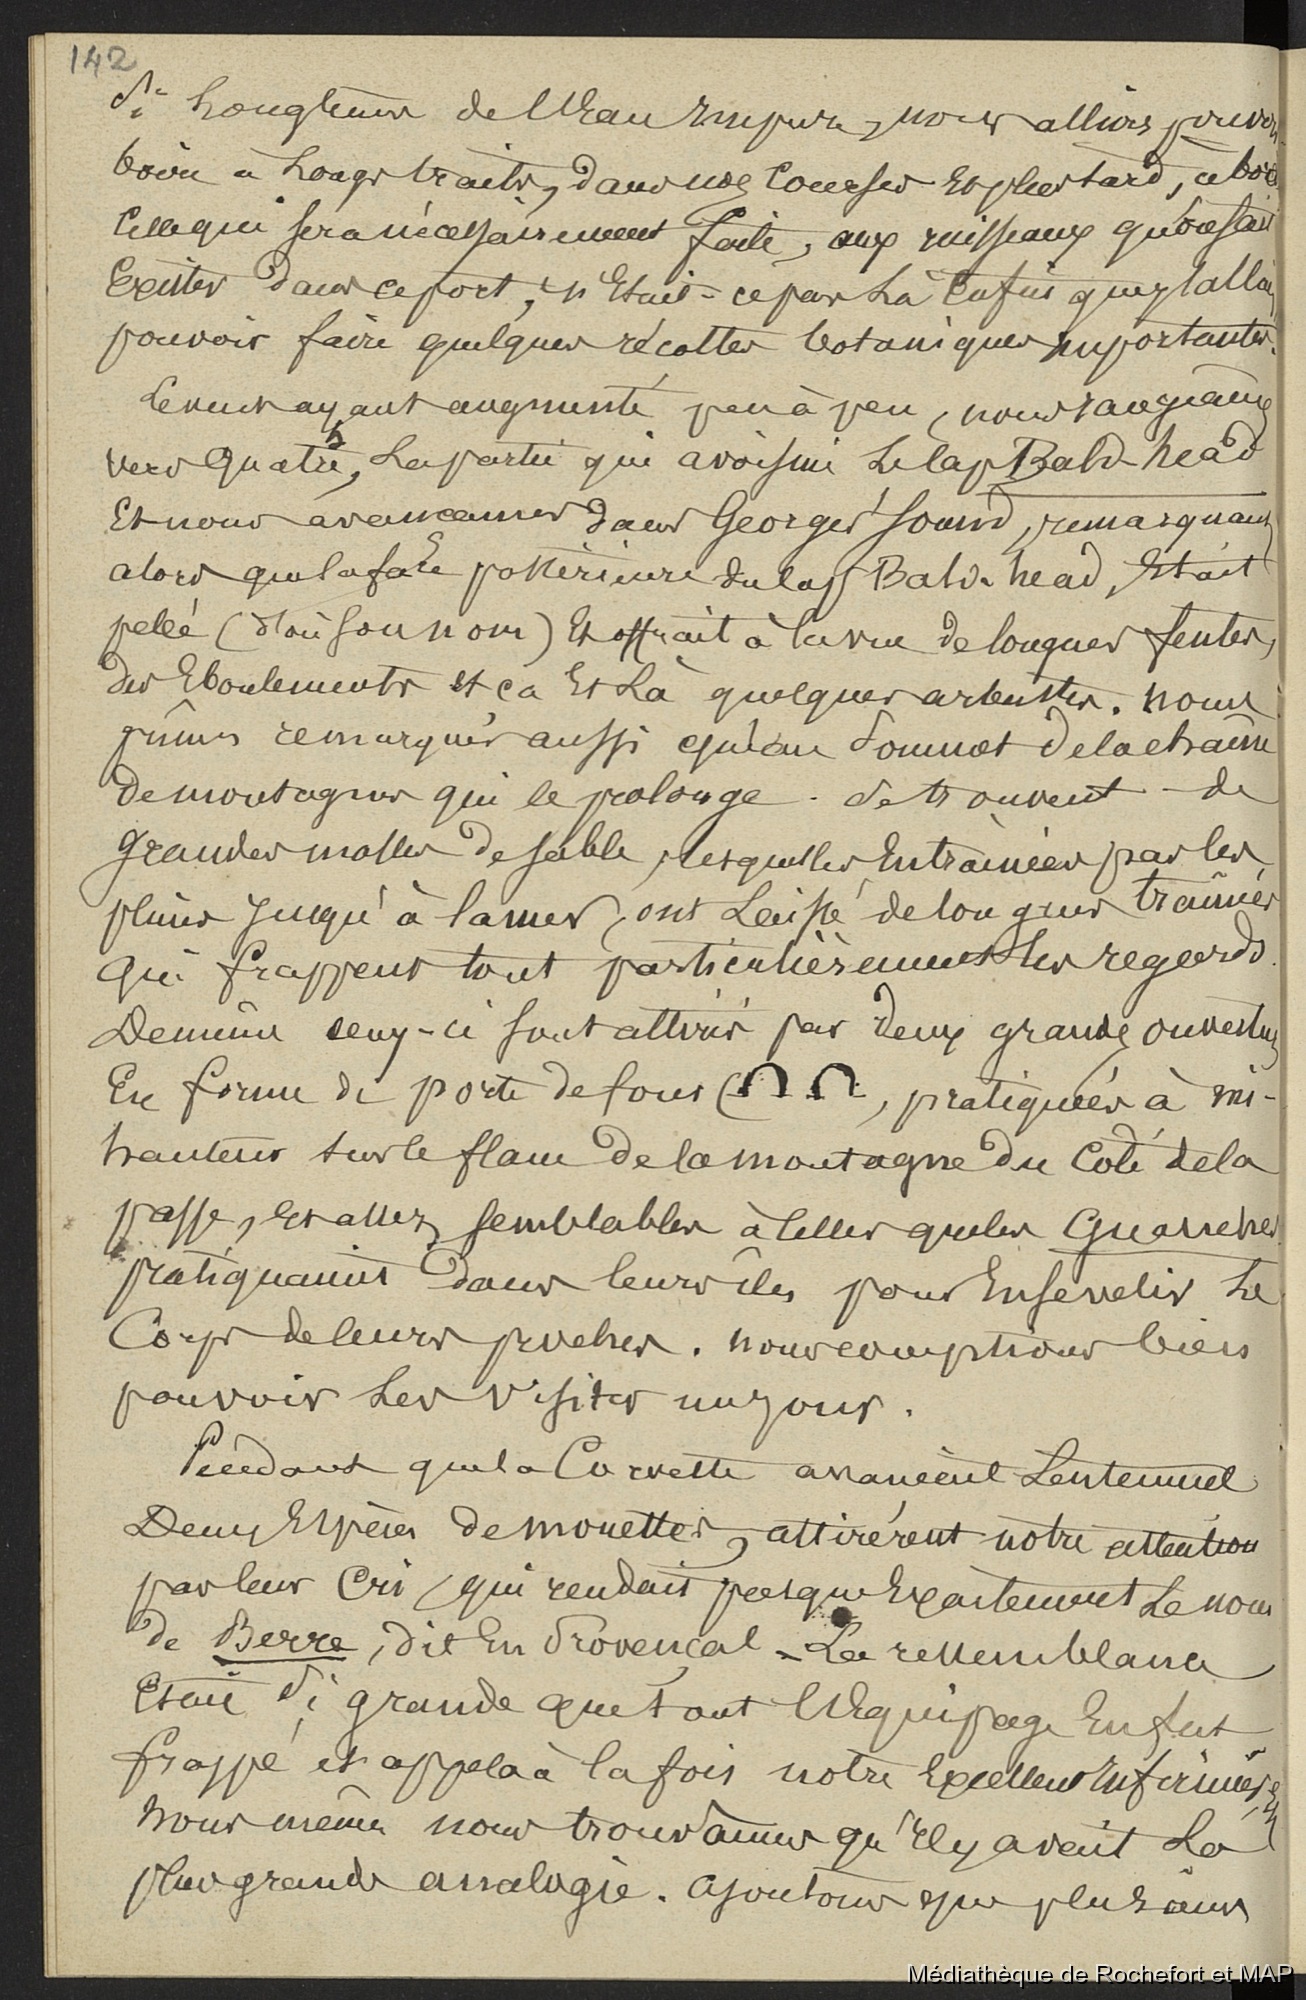 142
si longtems de l'Eau impure, nous allions pouvoir
boire à longs traits, dans nos Courses Et plus tard, à bord
Celle qui sera nécessairement faite, aux ruisseaux qu'on sait
Exister dans ce port, n'Etait-ce pas Là Enfin que j'allais
pouvoir faire quelques récoltes botaniques importantes.
Le vent ayant augmenté peu à peu, nous rangeames
vers quatre h, La partie qui avoisine Le Cap Bald-head
Et nous avançames dans Georges' sound, remarquant
alors que la face postérieure du Cap Bald-head, Etait
pelée (d'où son nom) Et offrait à la vue de longues fentes,
des Eboulements et ça Et Là quelques arbustes. Nous
pûmes remarquer aussi qu'au sommet de la chaîne
de montagnes qui le prolonge. se trouvent de
grandes masses de sable, lesquelles Entrainées par les
pluies jusqu'à la mer, ont Laissé de longues traînées
qui frappent tout particulièrement les regards.
De même ceux-ci sont attirés par deux grandes ouvertures
En forme de porte de four (, pratiquées à mi-
hauteur sur le flanc de la montagne du Coté de la
passe, Et assez semblables à Celles que les Guanches
pratiquaient dans leurs îles pour Ensevelir Le
Corps de leurs proches. Nous comptions bien
pouvoir Les visiter un jour.
Pendant que la Corvette avancait Lentement
Deux Espèces de mouettes, attirèrent notre attention
par leur Cri, qui rendait presque Exactement Le nom
de Berre, dit En Provençal - La ressemblance
Etait si grande que tout l'Equipage En fut
frappé et appela à la fois notre Excellent Infirmier, Et
Nous même nous trouvâmes qu'Il y avait La
plus grande analogie. Ajoutons que
Médiathèque de Rochefort et MAP